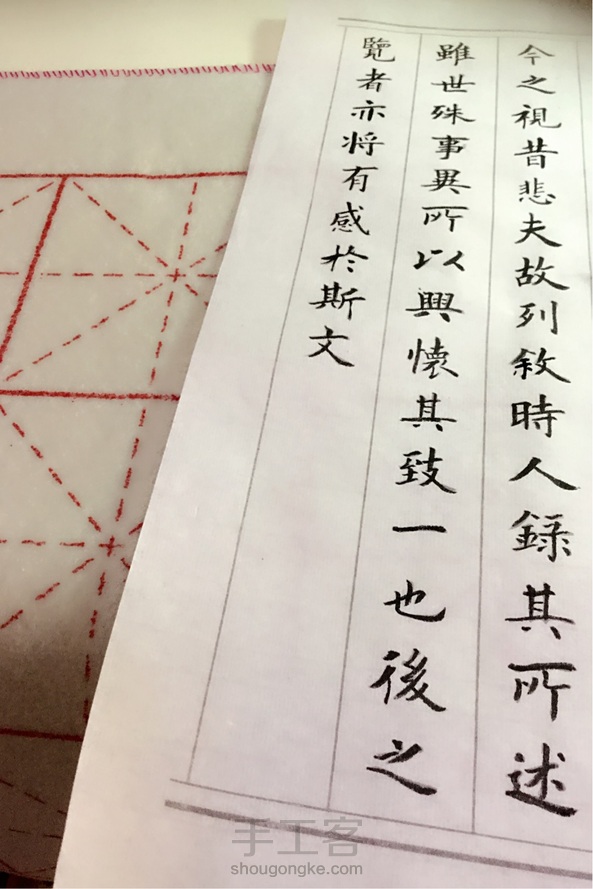 今之視昔悲夫故列敘時人録其所述
雖世殊事異所以興懷其致一也後之
覽者亦將有感於斯文
手工客
shougongke.com